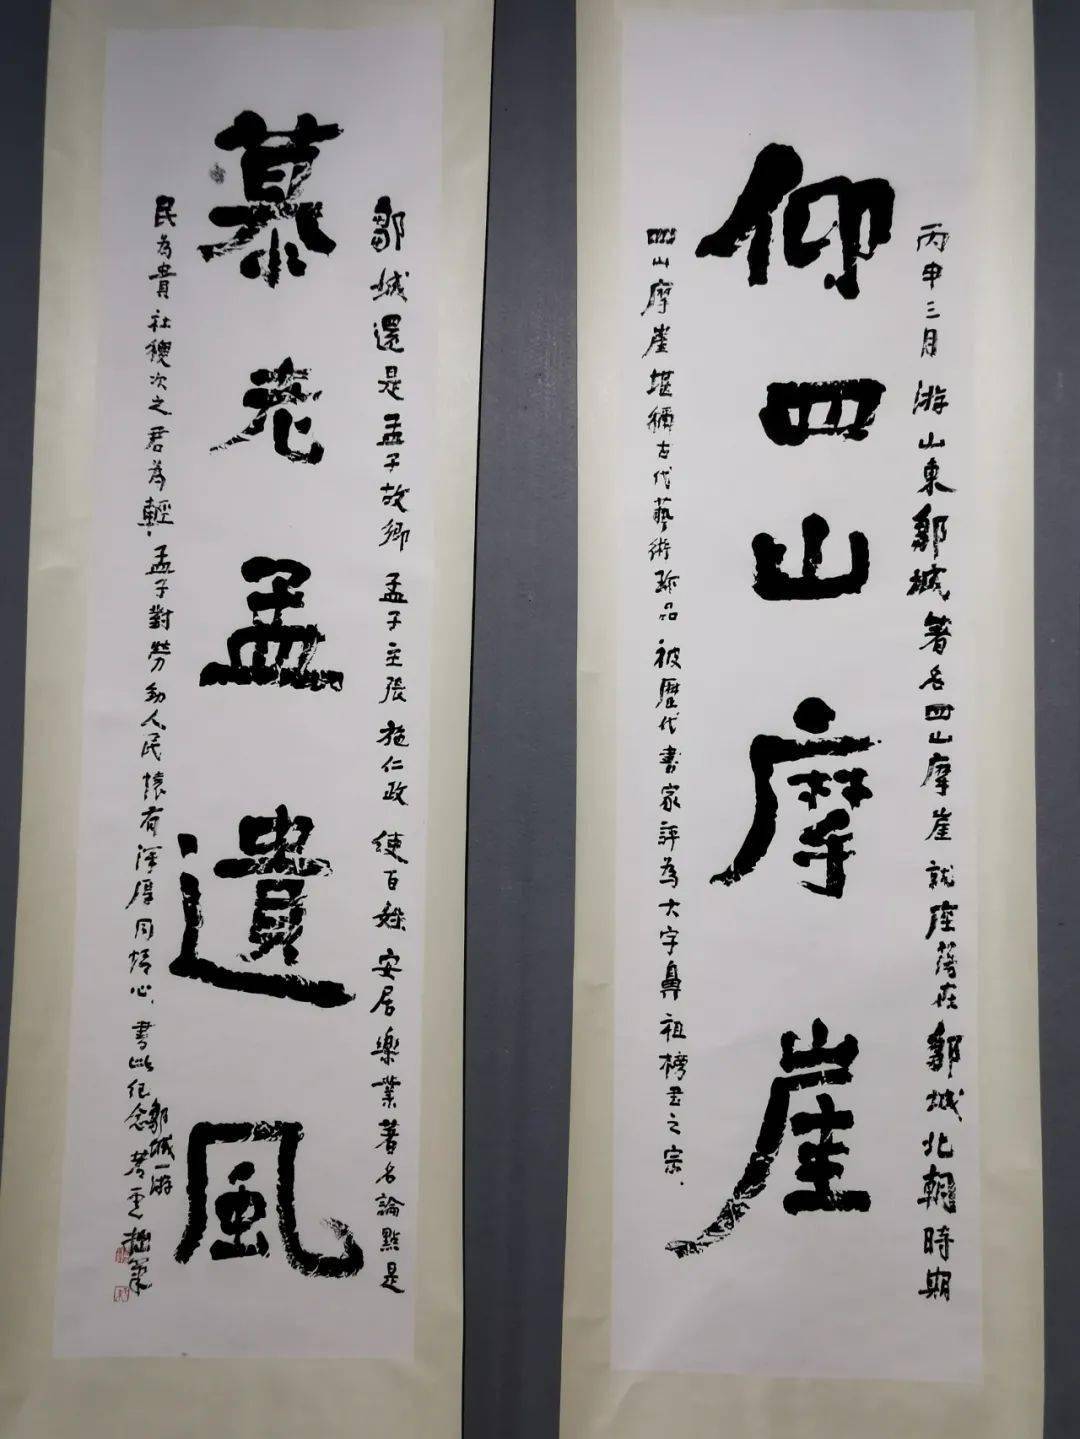 仰四山摩崖
丙申三月游山東鄒城著名四山摩崖就座落在鄒城北朝時期
四山摩崖堪稱古代藝術珍品被歷代書家評為大字鼻祖榜書之宗.
慕老孟遺風
鄒城還是孟子故鄉孟子主張施仁政使百姓安居樂業著名論點是
民為貴社稷次之君為輕.孟子對勞動人民懷有深厚同情心.書此紀念
鄒城一游
拙筆